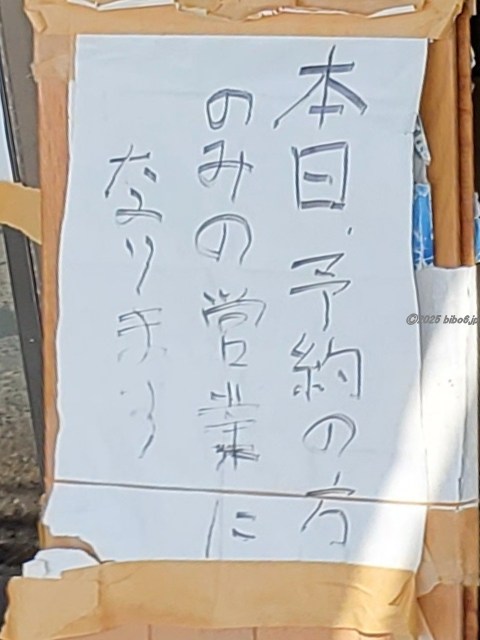 本日、予約の方
のみの営業に
なります
©2025 bibo6.jp